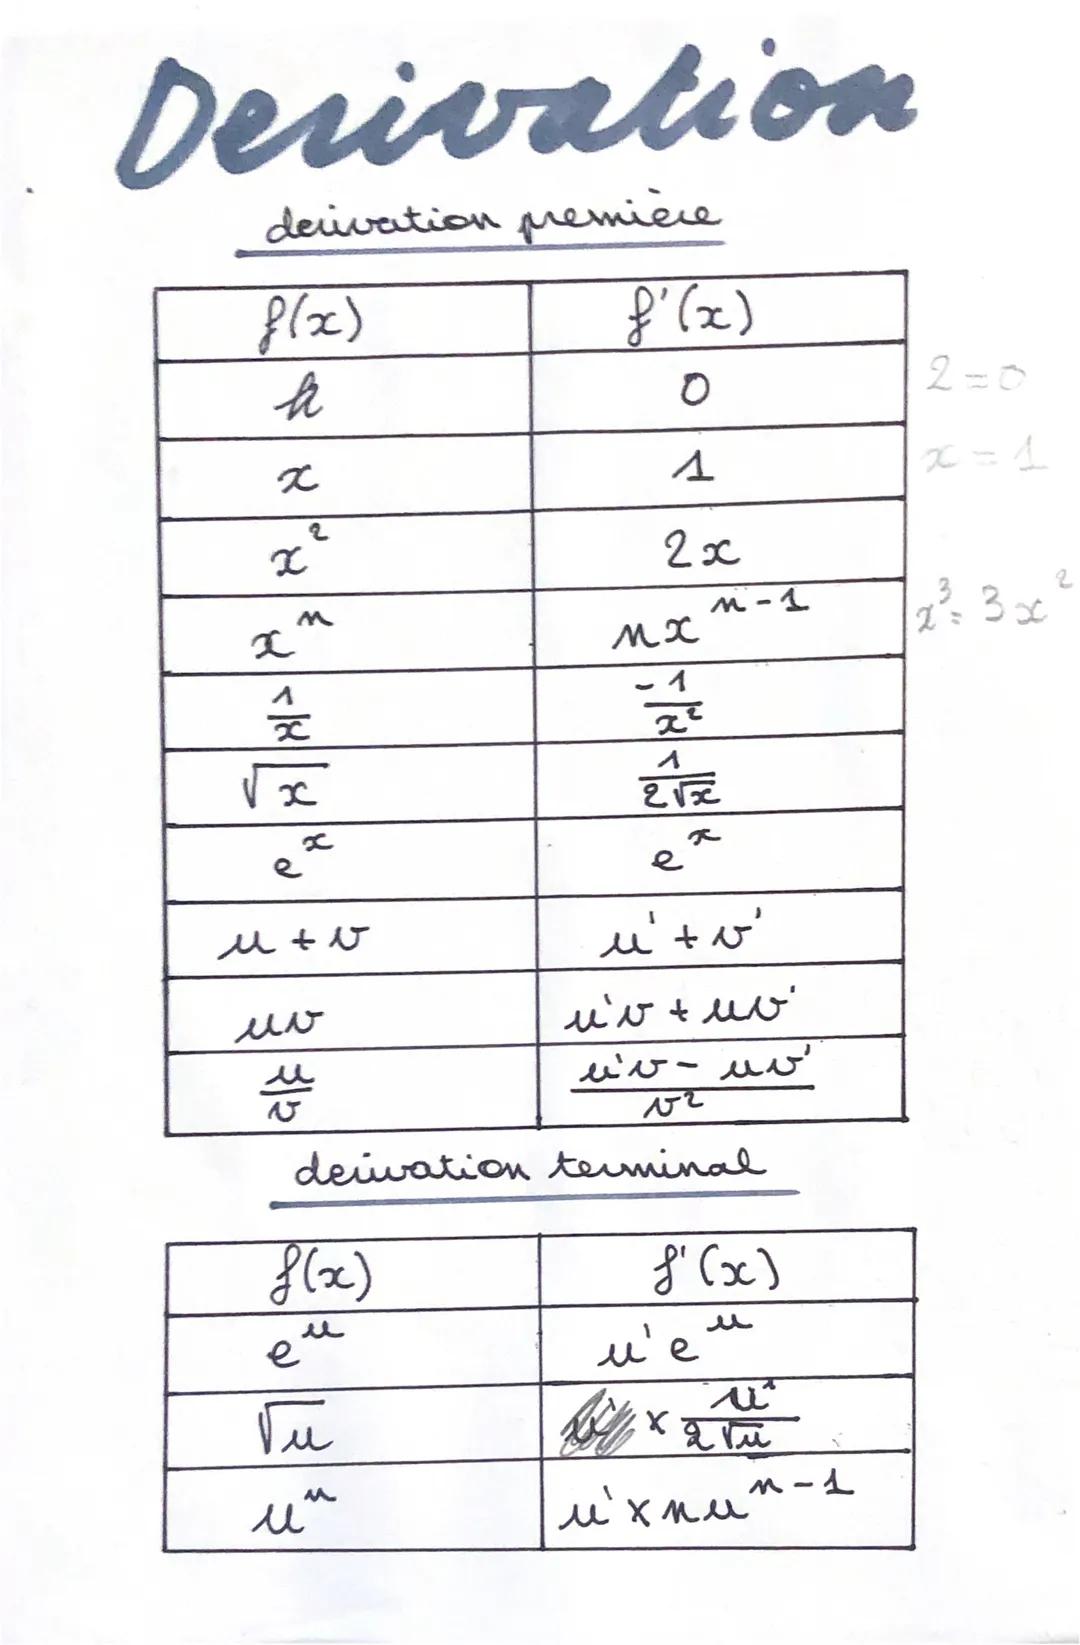 Derivation
derivation première
f(x) f'(x)
k 0 2=0
x 1 x=1
x² 2x
xⁿ nxⁿ⁻¹ x³=3x²
1/x -1/x²
√x 1/2√x
eˣ eˣ
u+v u'+v'
uv u'v+uv'
u/v u'v-uv'/v²
derivation terminal
f(x) f'(x)
eᵘ u'eᵘ
√u × u'/2√u
uⁿ u'×nuⁿ⁻¹